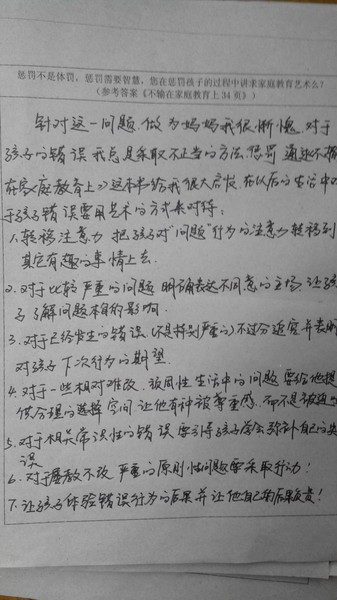 惩罚不是体罚，惩罚需要智慧，您在惩罚孩子的过程中讲求家庭教育艺术么？
（参考答案《不输在家庭教育上34页》）
针对这一问题，做为妈妈我很惭愧，对于
孩子的错误我总是采取不正当的方法，惩罚 通过《不输
在家庭教育上》这本书给我很大启发，在以后的生活中对
于孩子错误要用艺术的方式来对待：
1、转移注意力 把孩子对"问题"行为的注意力转移到
其它有趣的事情上去.
2、对于比较严重的问题 明确表达不同意的立场，让孩
子了解问题本身的影响.
3、对于已经发生的错误（不是特别严重的）不过分追究并表明
对孩子下次行为的期望.
4、对于一些相对难改、 生活中的问题 要给他提
供合理的选择空间，让他有种被尊重感，而不是被
5、对于相关常识性的错误 要引导孩子学会弥补自己的
误
6、对于屡教不改 严重的原则性问题要采取行动！
7、让孩子体验错误行为的后果并让他自己的后果负责！